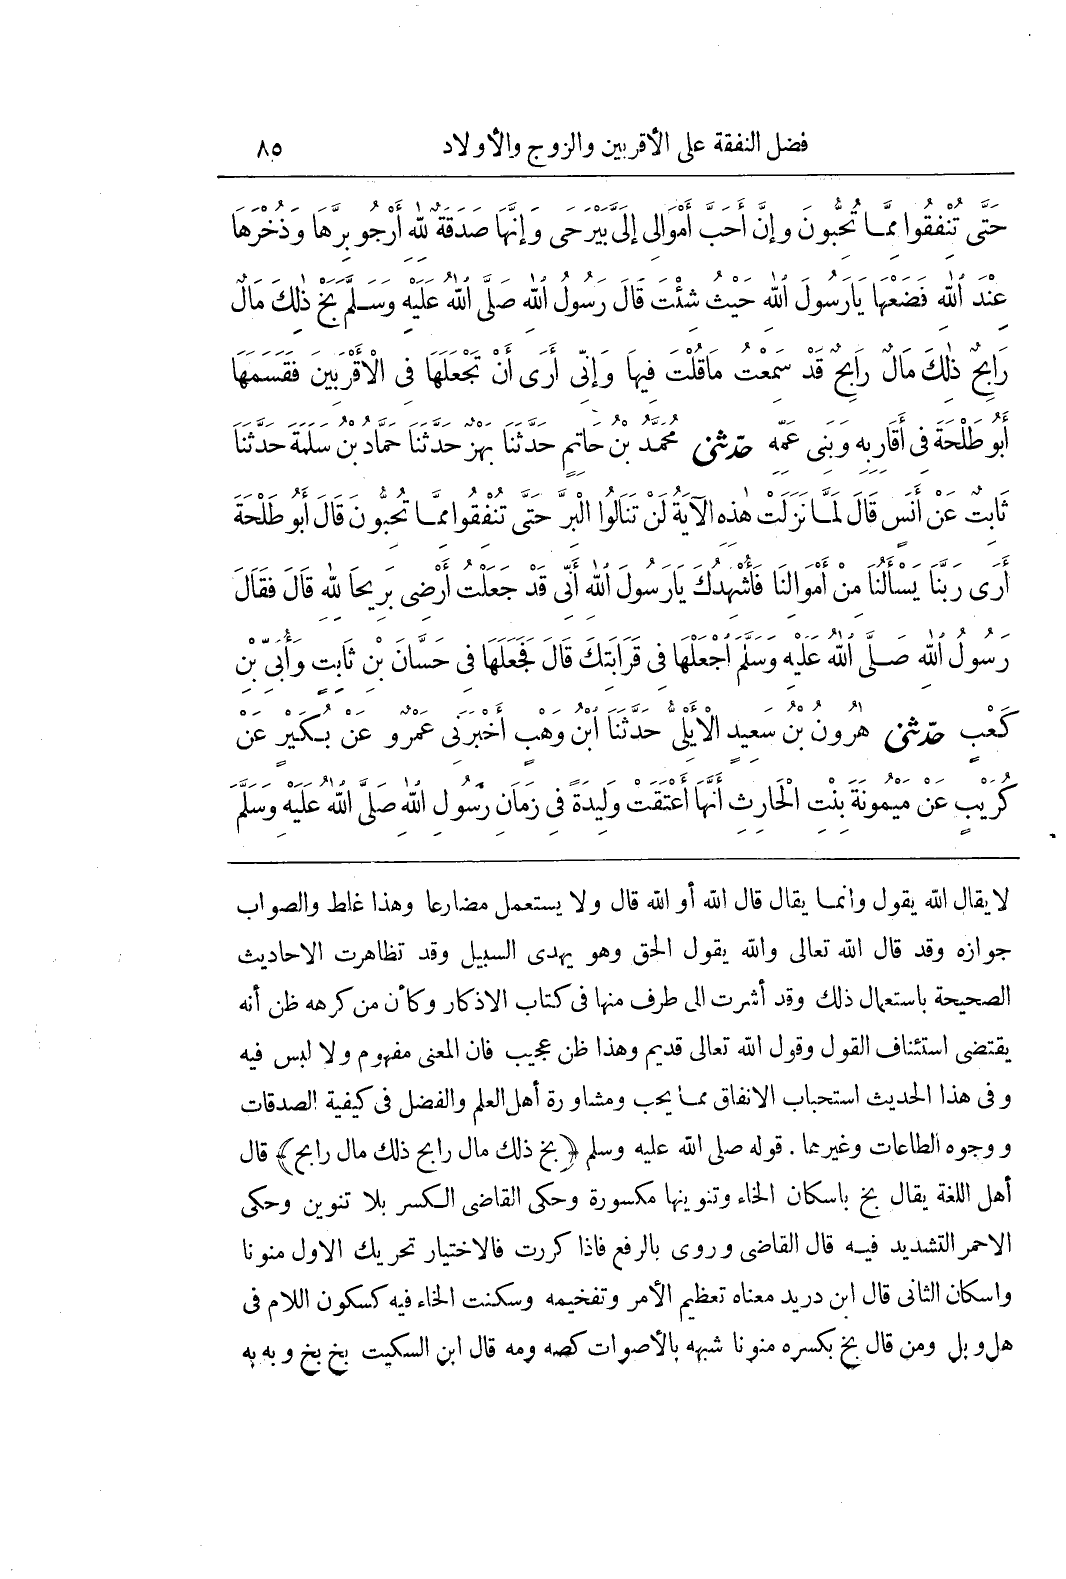 فضل النفقة على الأقربين والزوج والأولاد ٨٥
حَتَّى تُنْفِقُوا مِمَّا تُحِبُّونَ وَإِنَّ أَحَبَّ أَمْوَالِى إِلَىَّ بَيْرَحَى وَإِنَّهَا صَدَقَةٌ لِلّٰهِ أَرْجُو بِرَّهَا وَذُخْرَهَا
عِنْدَ اللّٰهِ فَضَعْهَا يَارَسُولَ اللّٰهِ حَيْثُ شِئْتَ قَالَ رَسُولُ اللّٰهِ صَلَّى اللّٰهُ عَلَيْهِ وَسَلَّمَ بَخْ ذٰلِكَ مَالٌ
رَابِحٌ ذٰلِكَ مَالٌ رَابِحٌ قَدْ سَمِعْتُ مَاقُلْتَ فِيهَا وَإِنِّى أَرَى أَنْ تَجْعَلَهَا فِى الْأَقْرَبِينَ فَقَسَمَهَا
أَبُو طَلْحَةَ فِى أَقَارِبِهِ وَبَنِى عَمِّهِ حدّثنى مُحَمَّدُ بْنُ حَاتِمٍ حَدَّثَنَا بَهْزٌ حَدَّثَنَا حَمَّادُ بْنُ سَلَمَةَ حَدَّثَنَا
ثَابِتٌ عَنْ أَنَسٍ قَالَ لَمَّا نَزَلَتْ هٰذِهِ الْآيَةُ لَنْ تَنَالُوا الْبِرَّ حَتَّى تُنْفِقُوا مِمَّا تُحِبُّونَ قَالَ أَبُو طَلْحَةَ
أَرَى رَبَّنَا يَسْأَلُنَا مِنْ أَمْوَالِنَا فَأُشْهِدُكَ يَارَسُولَ اللّٰهِ أَنِّى قَدْ جَعَلْتُ أَرْضِى بَرِيحَا لِلّٰهِ قَالَ فَقَالَ
رَسُولُ اللّٰهِ صَلَّى اللّٰهُ عَلَيْهِ وَسَلَّمَ اجْعَلْهَا فِى قَرَابَتِكَ قَالَ فَجَعَلَهَا فِى حَسَّانَ بْنِ ثَابِتٍ وَأُبَىِّ بْنِ
كَعْبٍ حدّثنى هٰرُونُ بْنُ سَعِيدٍ الْأَيْلِىُّ حَدَّثَنَا ابْنُ وَهْبٍ أَخْبَرَنِى عَمْرٌو عَنْ بُكَيْرٍ عَنْ
كُرَيْبٍ عَنْ مَيْمُونَةَ بِنْتِ الْحَارِثِ أَنَّهَا أَعْتَقَتْ وَلِيدَةً فِى زَمَانِ رَسُولِ اللّٰهِ صَلَّى اللّٰهُ عَلَيْهِ وَسَلَّمَ
لايقال الله يقول وانما يقال قال الله أو الله قال ولا يستعمل مضارعا وهذا غلط والصواب
جوازه وقد قال الله تعالى والله يقول الحق وهو يهدى السبيل وقد تظاهرت الاحاديث
الصحيحة باستعمال ذلك وقد أشرت الى طرف منها فى كتاب الاذكار وكأن من كرهه ظن أنه
يقتضى استئناف القول وقول الله تعالى قديم وهذا ظن عجيب فان المعنى مفهوم ولا لبس فيه
وفى هذا الحديث استحباب الانفاق مما يحب ومشاورة أهل العلم والفضل فى كيفية الصدقات
ووجوه الطاعات وغيرهما . قوله صلى الله عليه وسلم ﴿بخ ذلك مال رابح ذلك مال رابح﴾ قال
أهل اللغة يقال بخ باسكان الخاء وتنوينها مكسورة وحكى القاضى الكسر بلا تنوين وحكى
الاحمر التشديد فيه قال القاضى وروى بالرفع فاذا كررت فالاختيار تحريك الاول منونا
واسكان الثانى قال ابن دريد معناه تعظيم الأمر وتفخيمه وسكنت الخاء فيه كسكون اللام فى
هل وبل ومن قال بخ بكسره منونا شبهه بالأصوات كصه ومه قال ابن السكيت بخ بخ وبه به